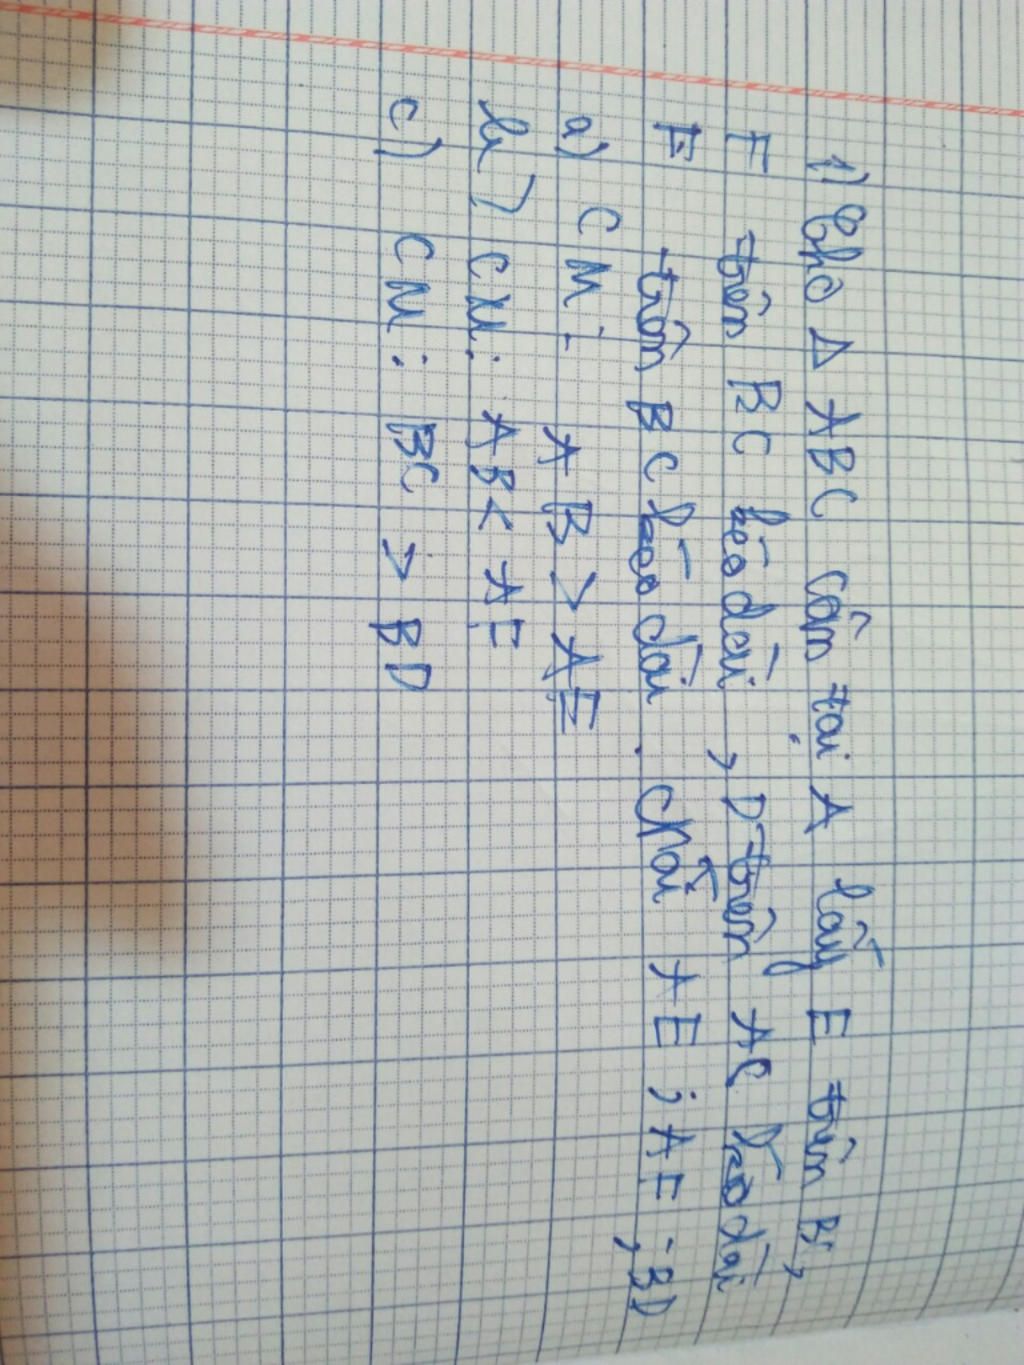 1) Cho Δ ABC cân tại A lấy E trên B,
F trên BC kéo dài, D trên AC kéo dài
F trên BC kéo dài. Nối AE; AF; BD
a) CM: AB > AE
b) CM: AB < AF
c) CM: BC > BD